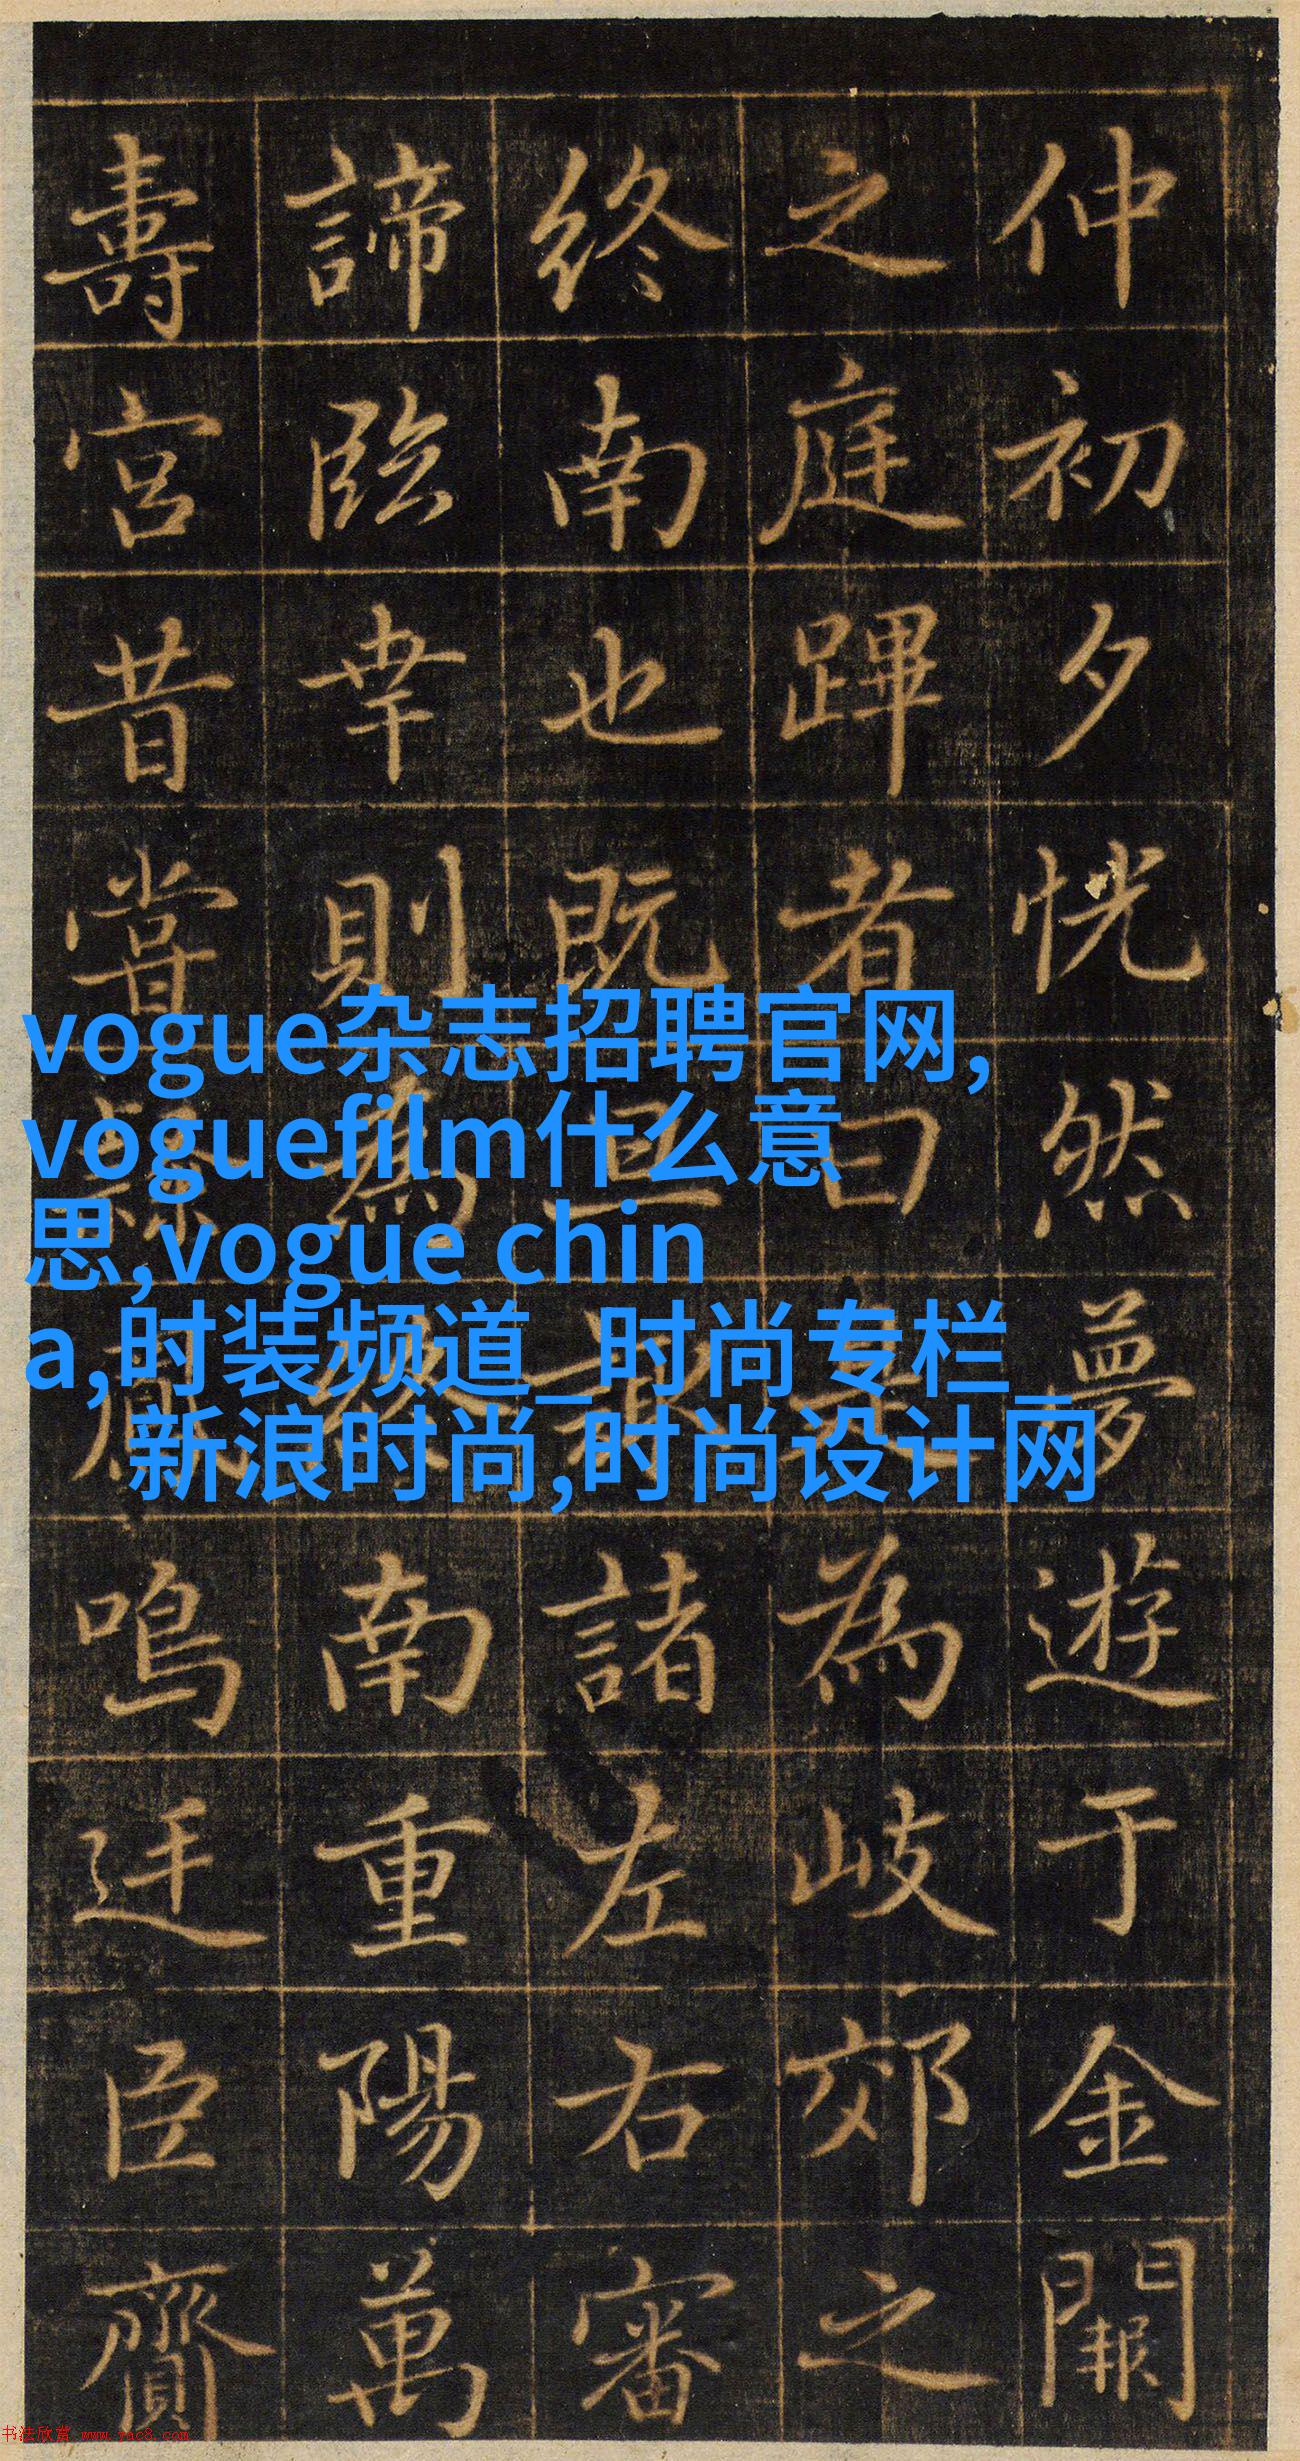 仲初夕恍然夢遊于金闕
之庭蹕者曰為岐郊之
終南也既諸左右審
諦臨幸則為南重陽萬
壽宮昔嘗鳴廷臣齎
vogue杂志招聘官网,
voguefilm什么意
思,vogue chin
a,时装频道_时尚专栏_
新浪时尚,时尚设计网
书法欣赏 www.yac8.com